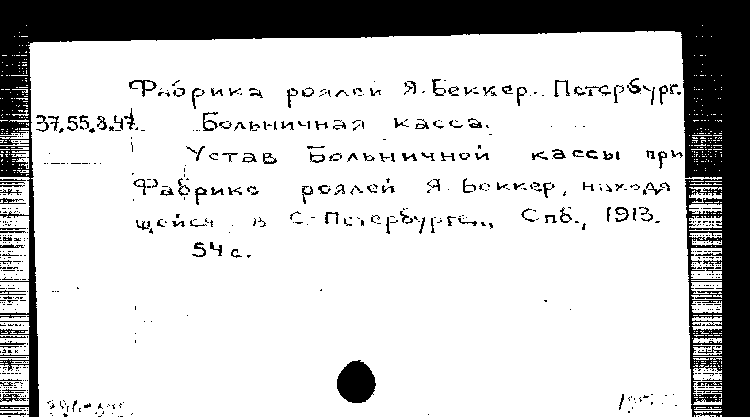 Фабрика роялей Я. Беккер. Петербург.
37.55.8.47. Больничная касса.
Устав Больничной кассы при
Фабрике роялей Я. Беккер, находя
щейся в С.-Петербурге., Спб., 1913.
54 с.